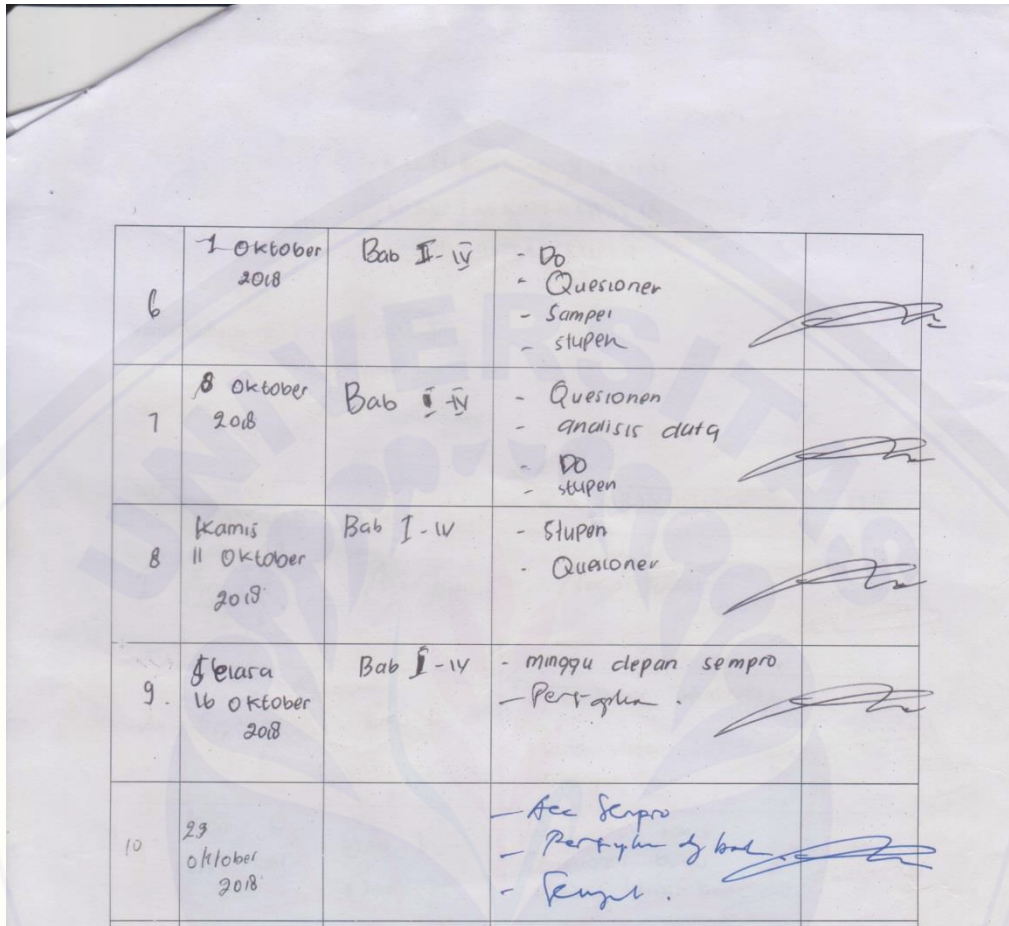 6
1 Oktober
2018
Bab II - IV
- Do
- Quesioner
- Sampel
- stupen
7
8 Oktober
2018
Bab I - IV
- Quesionen
- analisis data
- DO
- stupen
8
Kamis
11 Oktober
2018
Bab I - IV
- Stupen
- Quesioner
9.
Selasa
16 Oktober
2018
Bab I - IV
- minggu depan sempro
10
23
Oktober
2018
- Acc Sempro
UNIVERSITAS